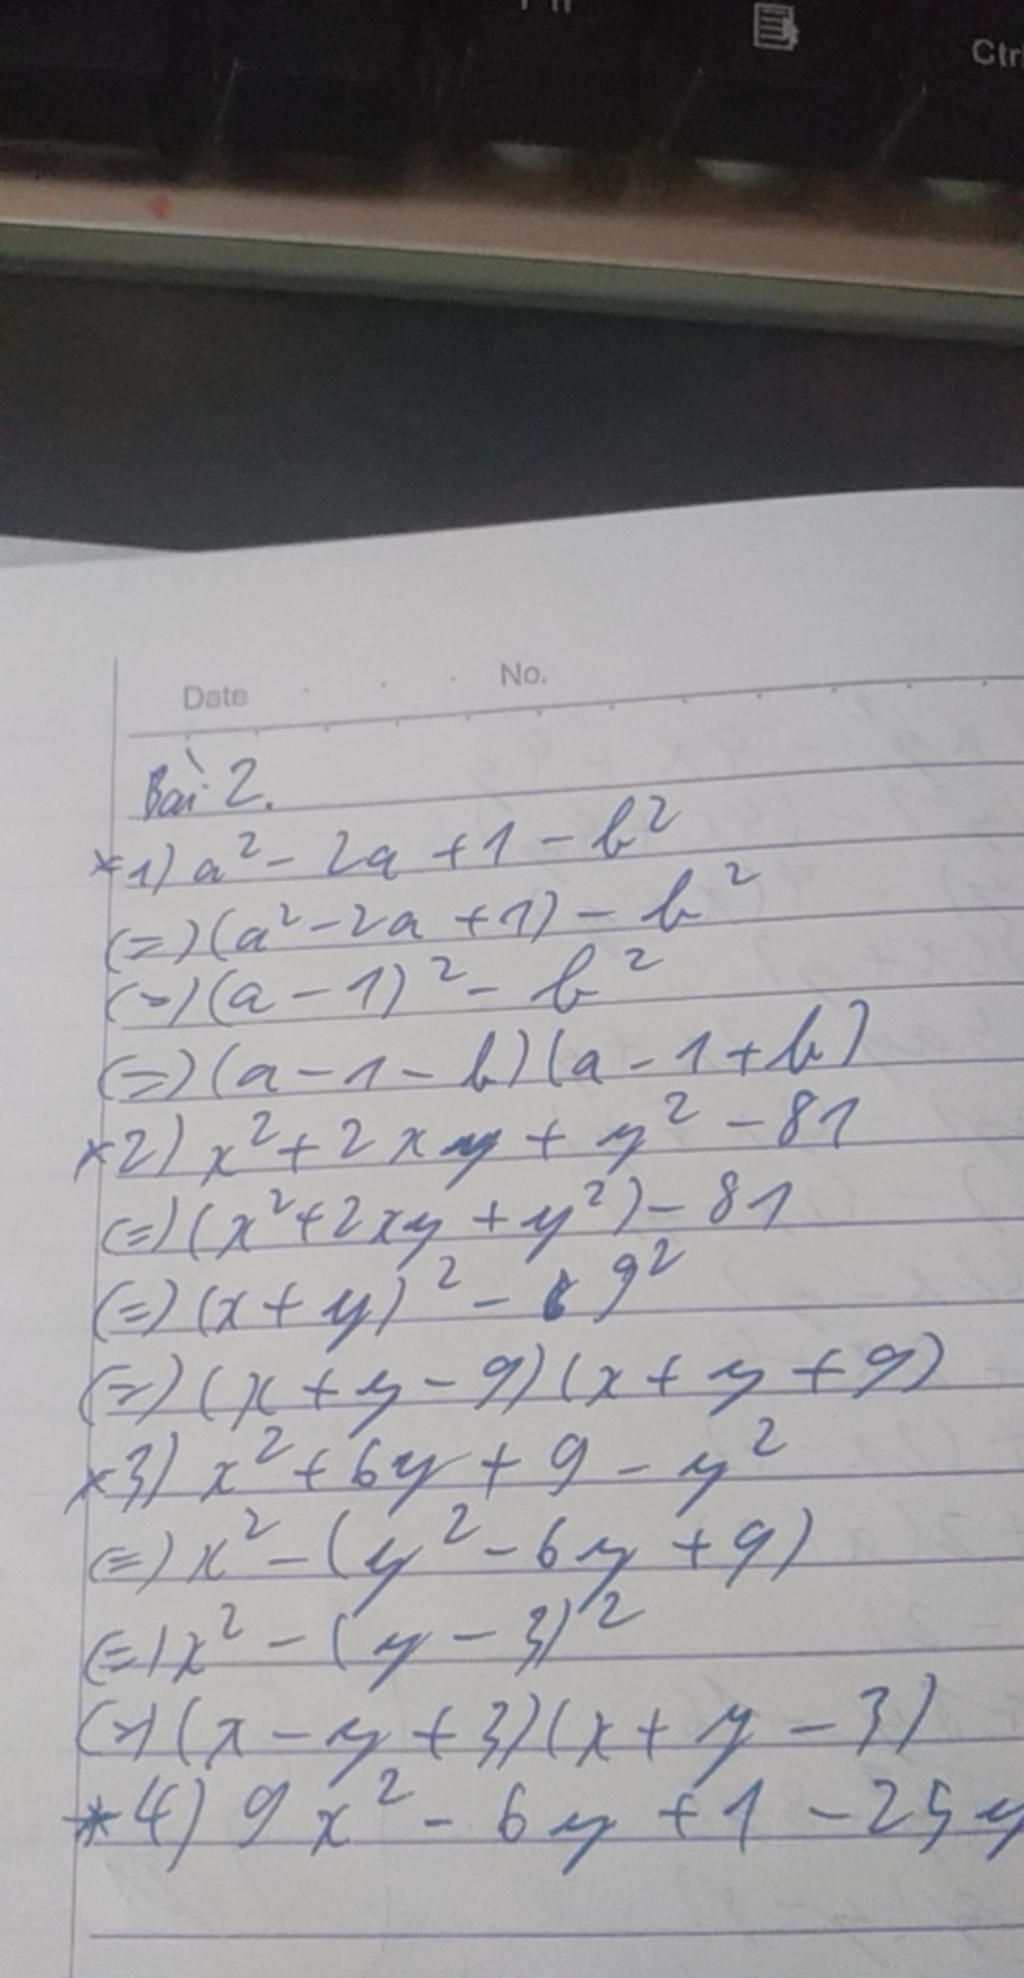 Ctr
Date No.
Bài 2.
*1) a² - 2a + 1 - b²
(=) (a² - 2a + 1) - b²
(=) (a - 1)² - b²
(=) (a - 1 - b)(a - 1 + b)
*2) x² + 2xy + y² - 81
(=) (x² + 2xy + y²) - 81
(=) (x + y)² - 9²
(=) (x + y - 9)(x + y + 9)
*3) x² + 6y + 9 - y²
(=) x² - (y² - 6y + 9)
(=) x² - (y - 3)²
(=) (x - y + 3)(x + y - 3)
*4) 9x² - 6y + 1 - 25y